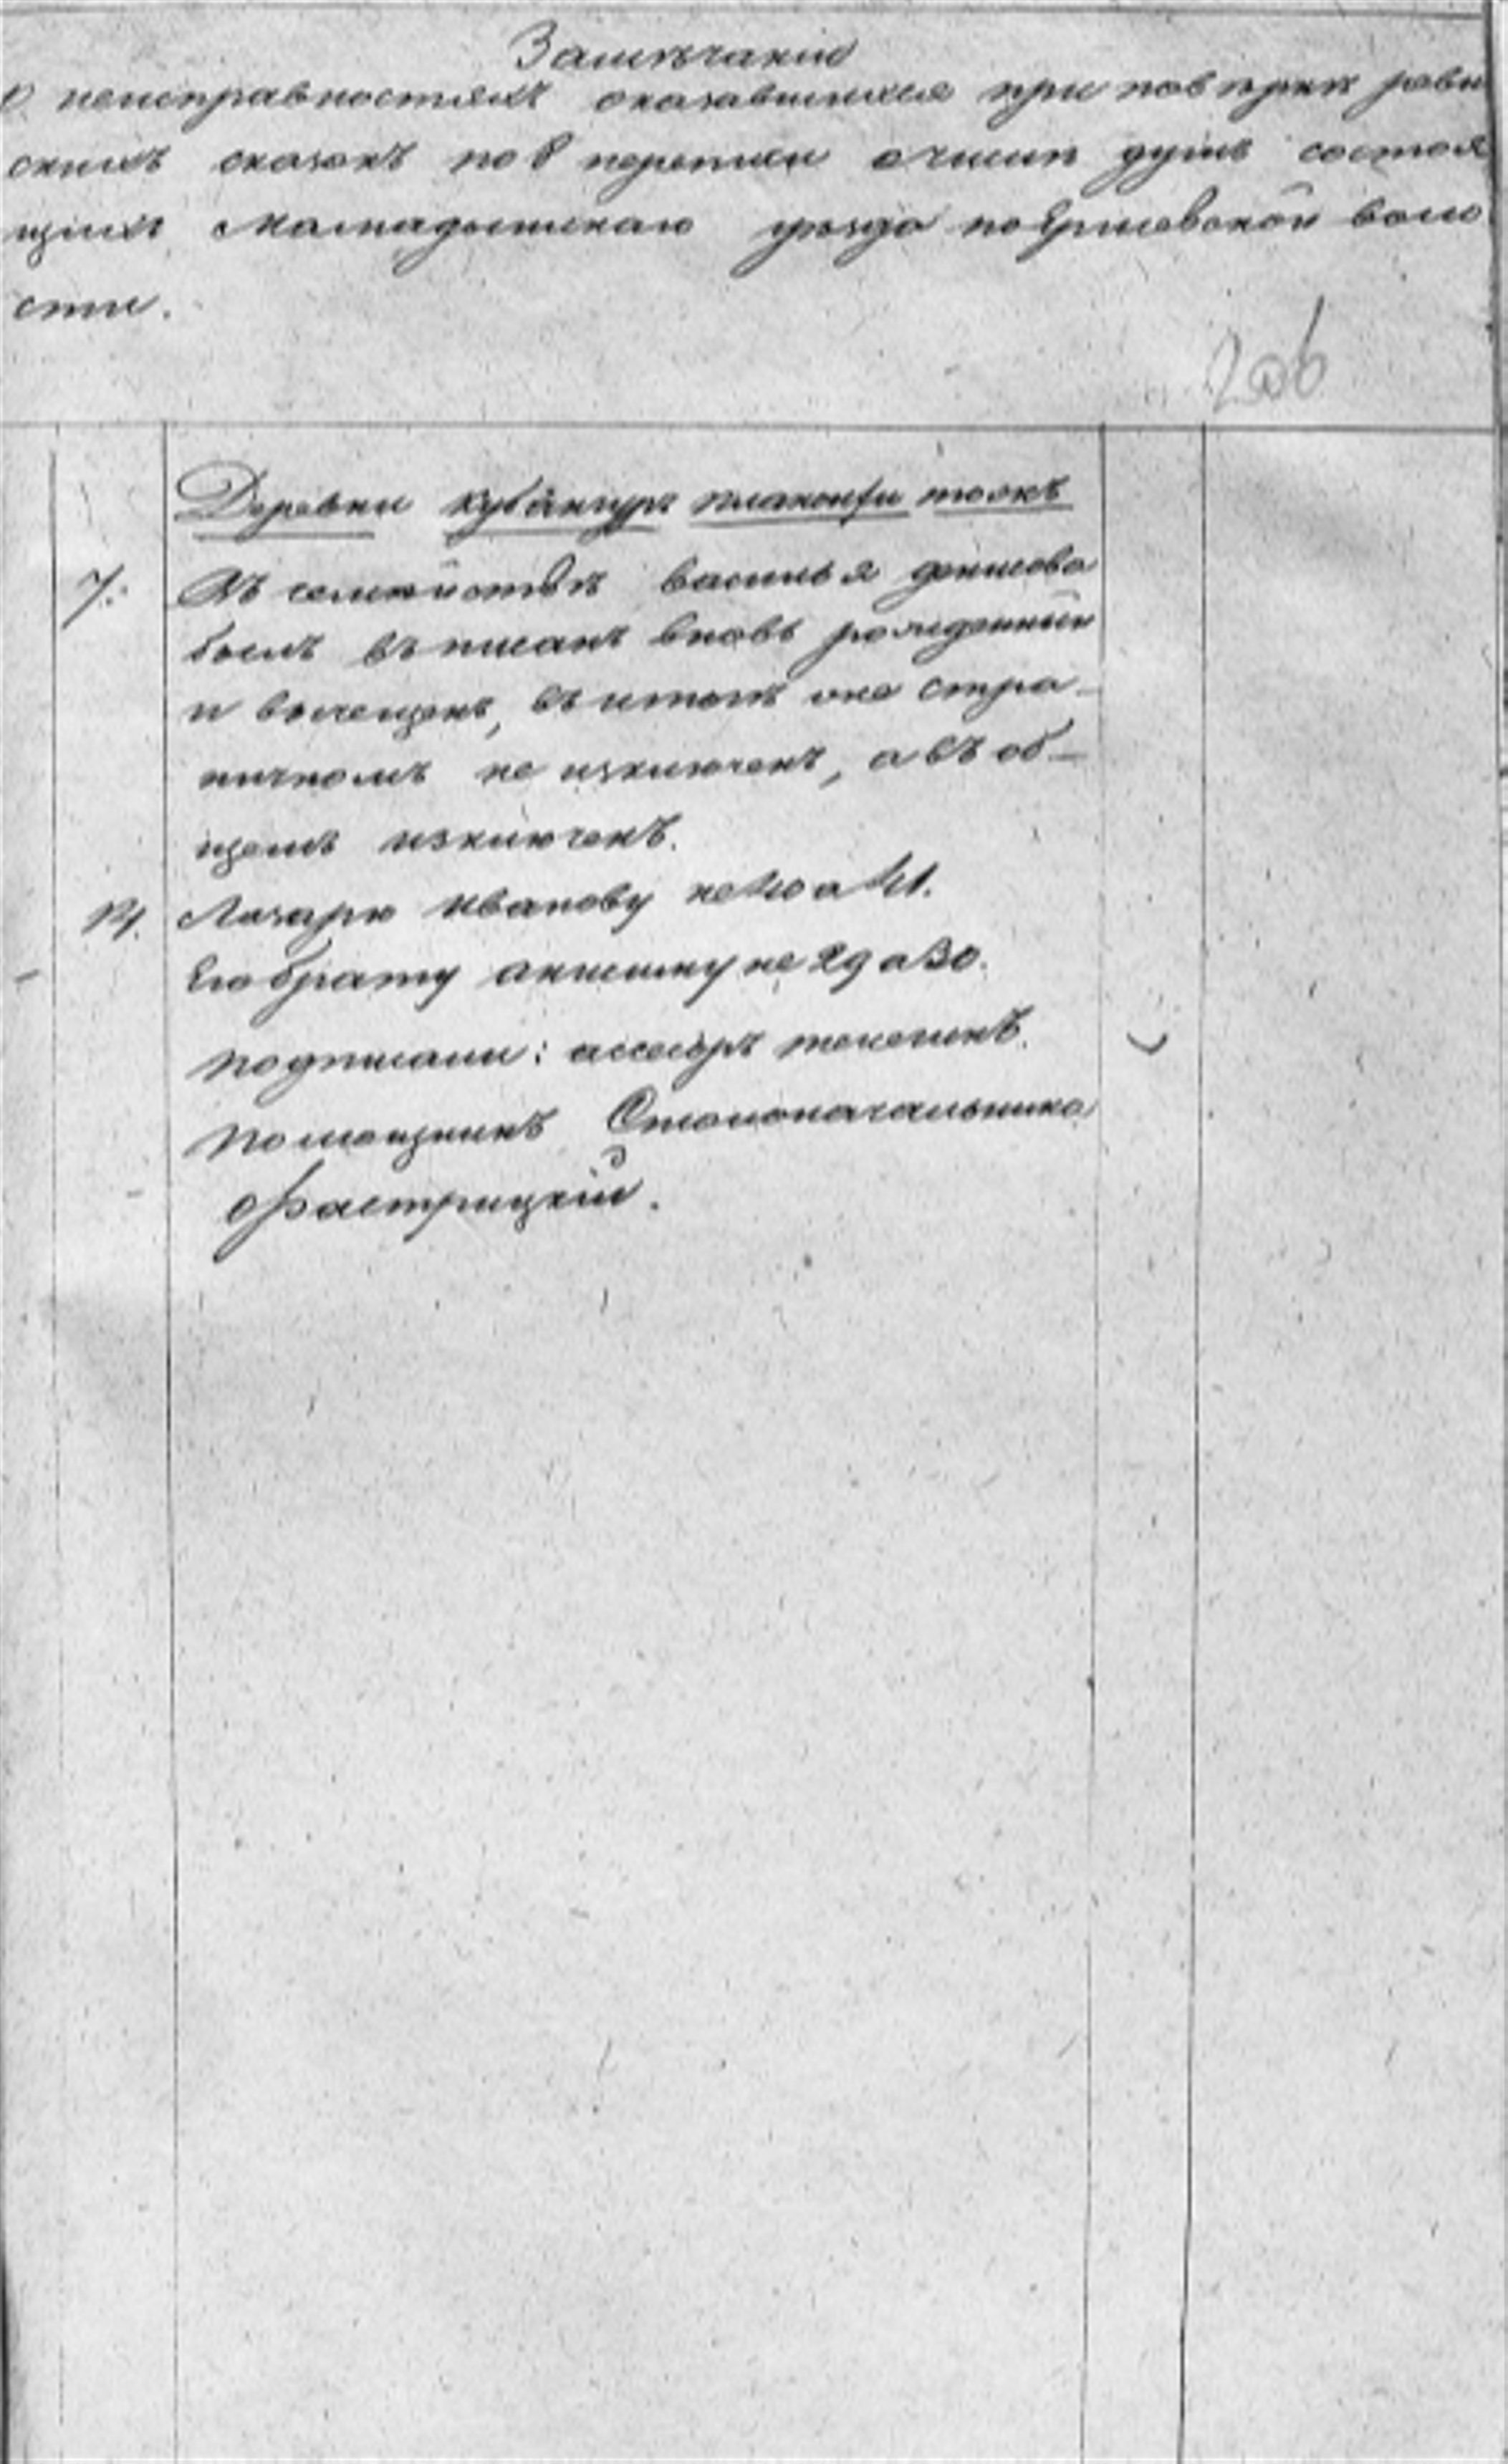 Замѣчаніи
О неисправностяхъ оказавшихся при повѣркѣ реви
скихъ сказокъ по 8 переписи о числѣ душъ состоя
щихъ Мамадышскаго уѣзда по Ершовской воло
сти.
206
Деревни Кубянгурт тожъ
7. Въ семействѣ Василья
былъ въписанъ вновь рожденный
и вычещенъ, въ итогѣ стра-
ничномъ не изключенъ, а въ об-
щемъ изключенъ.
14. Лазарю Иванову не 40 а 41.
Его брату не 29 а 30.
Подписали: ассесоръ
Помощникъ Столоначальника
Фастрицкій.